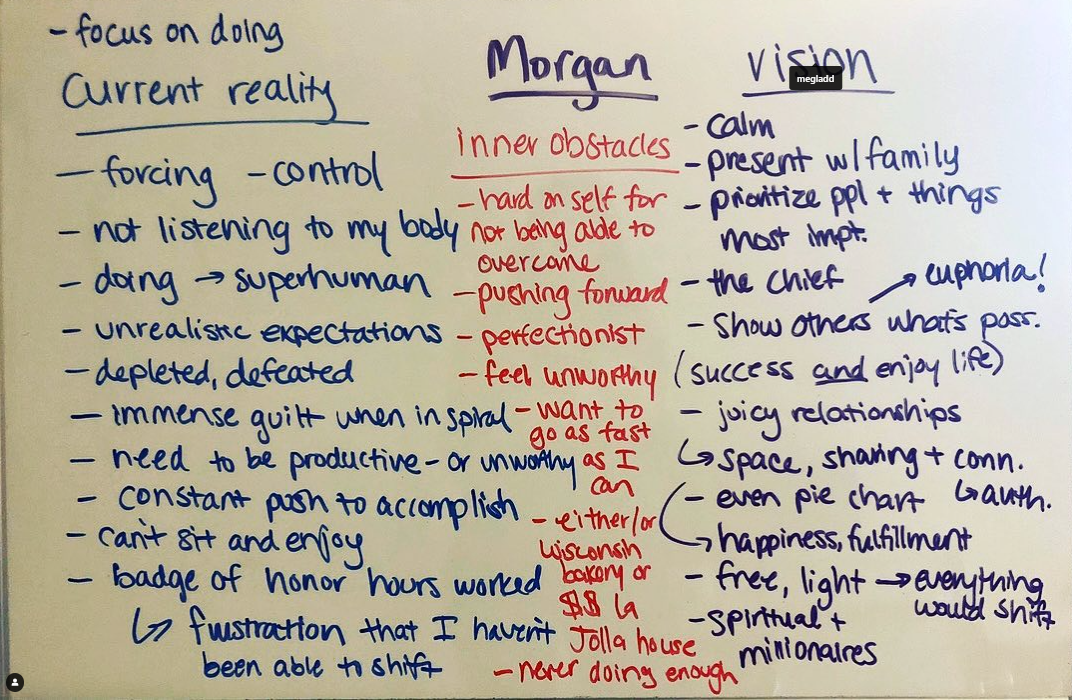 - focus on doing
Current reality
- forcing - control
- not listening to my body
- doing → superhuman
- unrealistic expectations
- depleted, defeated
- immense guilt when in spiral
- need to be productive - or unworthy
- constant push to accomplish
- can't sit and enjoy
- badge of honor hours worked
↳ frustration that I haven't
been able to shift
Morgan
inner obstacles
- hard on self for
not being able to
overcome
- pushing forward
- perfectionist
- feel unworthy
- want to
go as fast
as I
can
- either/or
Wisconsin
bakery or
$$ La
Jolla house
- never doing enough
vision
megladd
- calm
- present w/ family
- prioritize ppl + things
most impt.
- the chief
→ euphoria!
- Show others what's poss.
(success and enjoy life)
- juicy relationships
↳ space, sharing + conn.
↳ auth.
- even pie chart
→ happiness, fulfillment
- free, light → everything
would shift
- spiritual +
millionaires